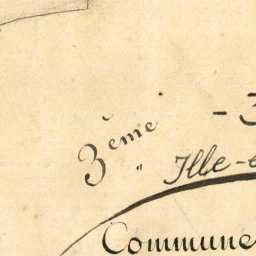 3ème
Ille-
Commune